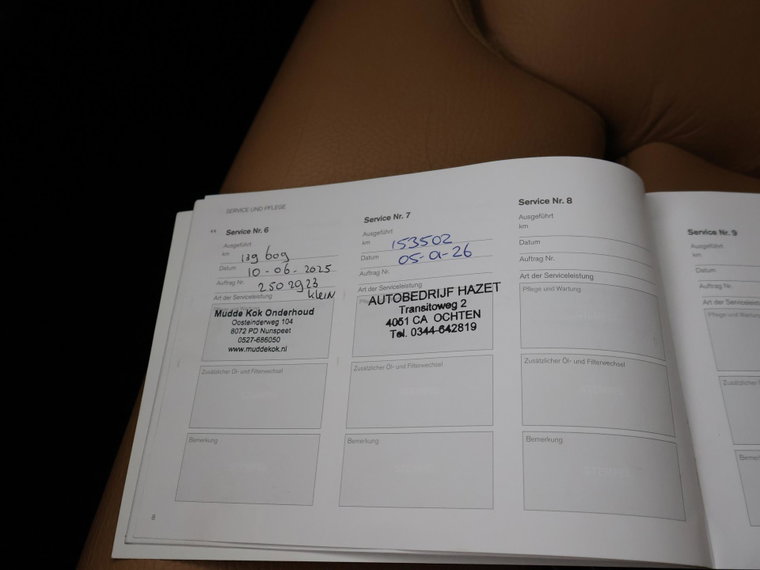 SERVICE UND PFLEGE
Service Nr. 6
Ausgeführt
km 139 609
Datum 10-06-2025
Auftrag Nr. 2502923
Art der Serviceleistung Klein
Mudde Kok Onderhoud
Oosteinderweg 104
8072 PD Nunspeet
0527-686050
www.muddekok.nl
Zusätzlicher Öl- und Filterwechsel
Bemerkung
8
Service Nr. 7
Ausgeführt
km 153502
Datum 05-01-26
Auftrag Nr.
Art der Serviceleistung
AUTOBEDRIJF HAZET
Transitoweg 2
4051 CA OCHTEN
Tel. 0344-642819
Zusätzlicher Öl- und Filterwechsel
Bemerkung
Service Nr. 8
Ausgeführt
km
Datum
Auftrag Nr.
Art der Serviceleistung
Pflege und Wartung
Zusätzlicher Öl- und Filterwechsel
Bemerkung
Service Nr. 9
Ausgeführt
km
Datum
Auftrag Nr.
Art der Serviceleistung
Pflege und Wartung
Zusätzlicher Öl-
Bemerkung